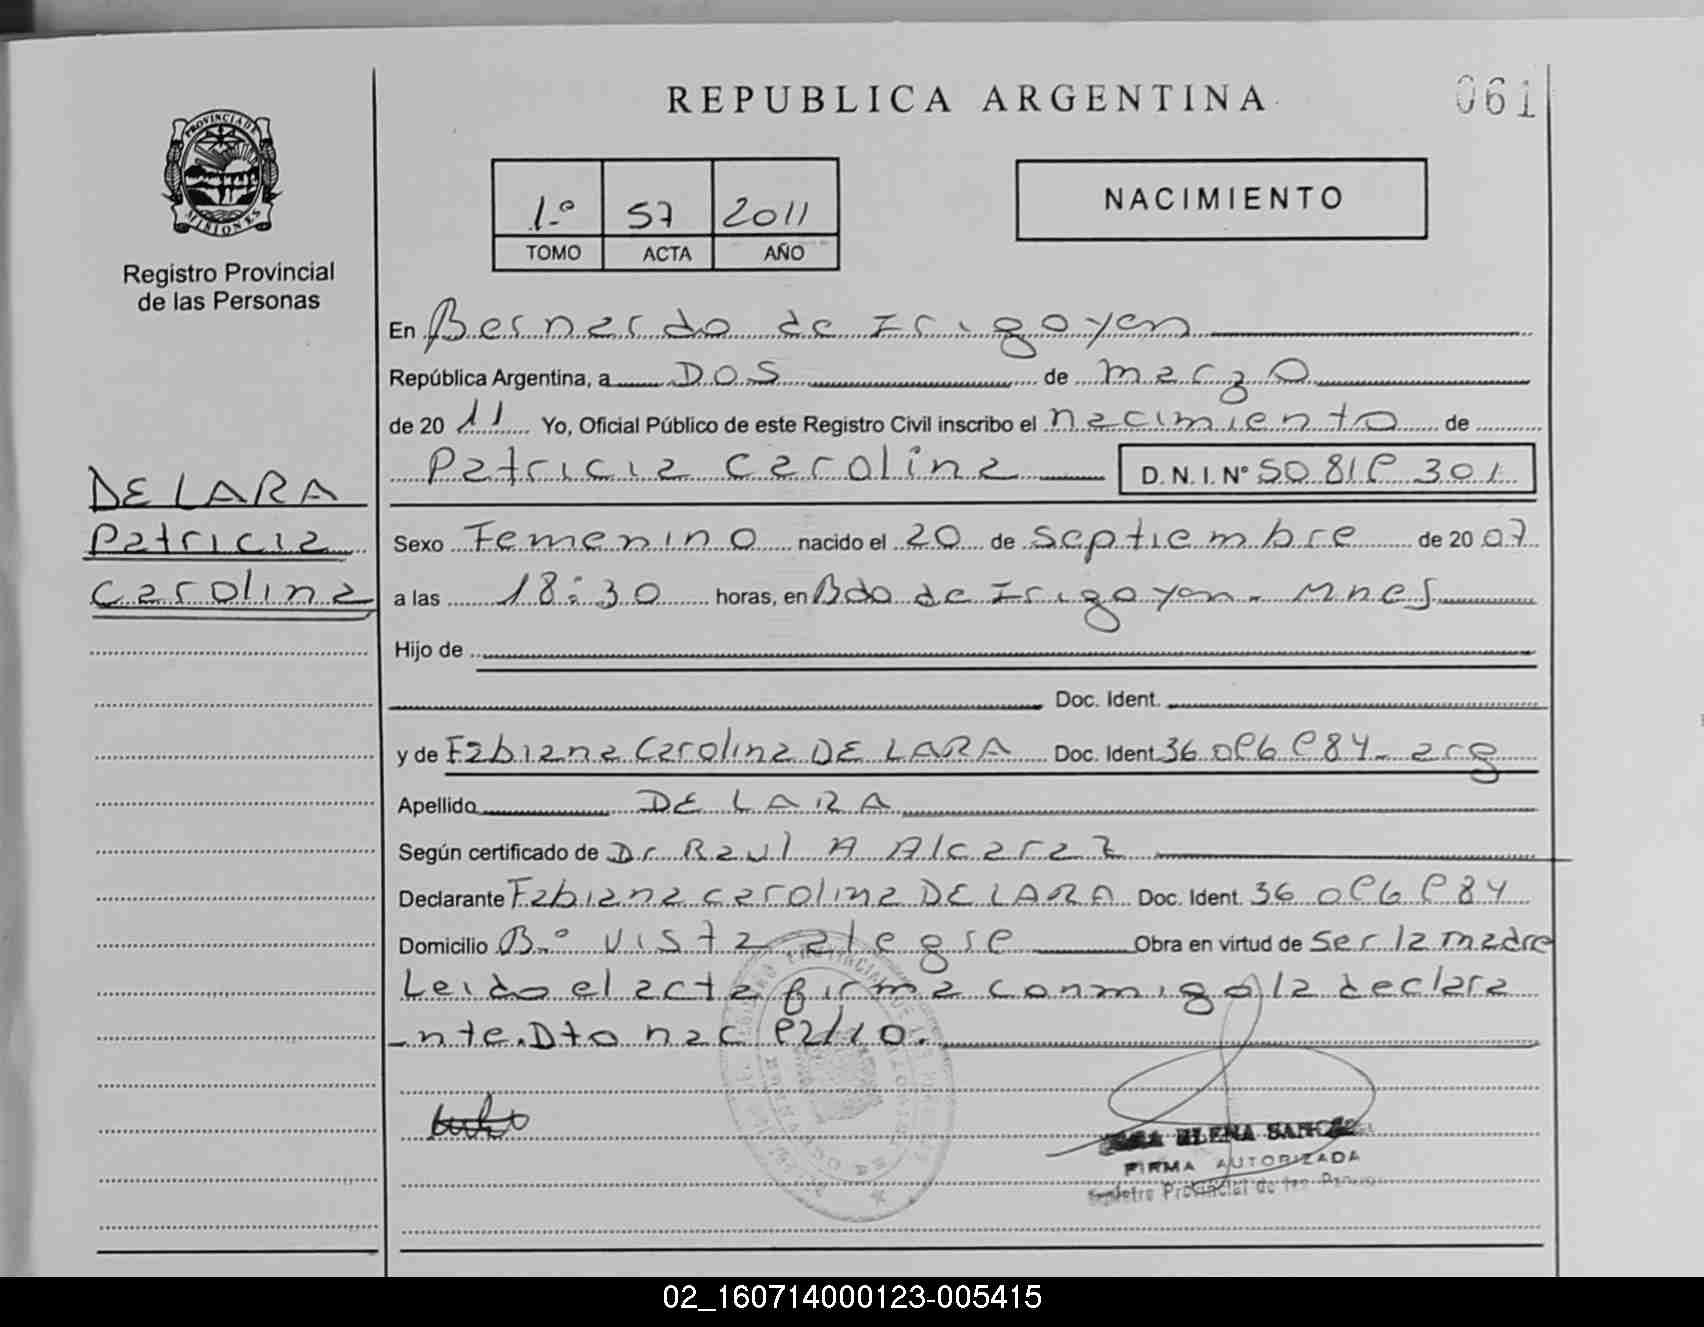 REPUBLICA ARGENTINA
061
PROVINCIA DE
MISIONES
Registro Provincial
de las Personas
1º 57 2011
TOMO ACTA AÑO
NACIMIENTO
En Bernardo de Irigoyen
República Argentina, a DOS de marzo
de 20 11 Yo, Oficial Público de este Registro Civil inscribo el nacimiento de
Patricia Carolina D. N. I. Nº
DE LARA
Patricia
Carolina
Sexo Femenino nacido el 20 de septiembre de 20 07
a las 18:30 horas, en Bdo de Irigoyen - Mnes
Hijo de
Doc. Ident.
y de Fabiana Carolina DE LARA Doc. Ident. arg
Apellido DE LARA
Según certificado de Dr Raul A Alcaraz
Declarante Fabiana Carolina DE LARA Doc. Ident.
Domicilio B.º Vista alegre Obra en virtud de Ser la madre
Leido el acta firma conmigo la declara
nte. Dto nac
ELENA
FIRMA AUTORIZADA
Registro Provincial de las
02_160714000123-005415